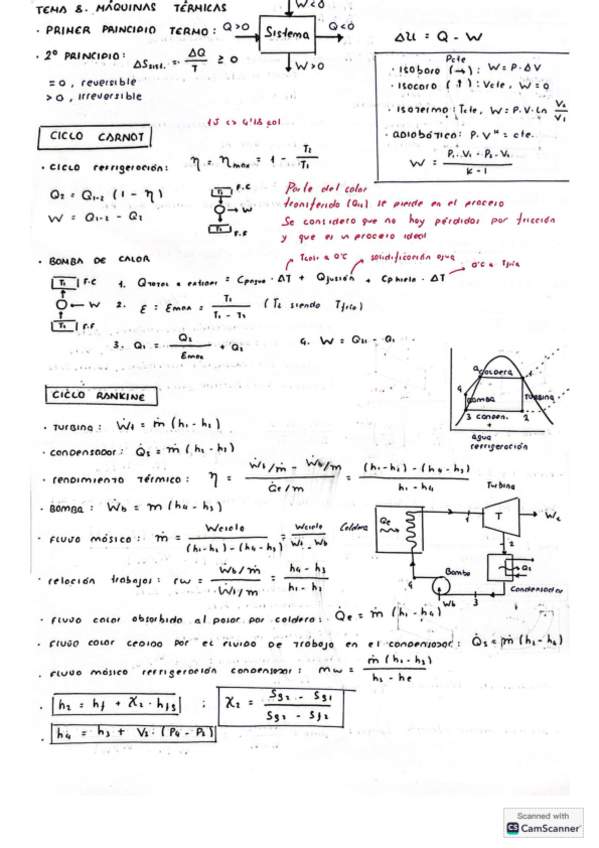 TEMA 8. MÁQUINAS TÉRMICAS
W<0
· PRIMER PRINCIPIO TERMO: Q>0 Sistema Q<0
W>0
ΔU = Q - W
· 2º PRINCIPIO: ΔSint. = ΔQ/T ≥ 0
= 0, reversible
> 0, irreversible
Pcte
· ISOBARO (→): W = P·ΔV
· ISOCORO (↑): Vcte, W = 0
· ISOTERMO: Tcte, W = P·V·Ln V2/V1
· ADIABÁTICO: P·V^K = cte.
W = P1·V1 - P2·V2 / K - 1
CICLO CARNOT
1J <> 4'18 cal
· CICLO REFRIGERACIÓN: η = ηmax = 1 - T2/T1
Q2 = Q1-2 (1 - η)
W = Q1-2 - Q2
T1 F.C
W
T2 F.F
Parte del calor
transferido (Q12) se pierde en el proceso
Se considera que no hay pérdidas por fricción
y que es un proceso ideal
· BOMBA DE CALOR
T1 F.C
W
T2 F.F
Tcalo a 0ºC
solidificación agua
0ºC a Tfría
1. Qtotal a extraer = Cpagua · ΔT + Qfusión + Cphielo · ΔT
2. E = Emax = T2 / T1 - T2 (T2 siendo Tfrío)
3. Q1 = Q2/Emax + Q2
4. W = Q21 - Q1
CICLO RANKINE
a CALDERA 1
4 BOMBA TURBINA
3 CONDEN. 2
agua
refrigeración
· TURBINA: Ẇt = ṁ (h1 - h2)
· CONDENSADOR: Q̇s = ṁ (h2 - h3)
· RENDIMIENTO TÉRMICO: η = Ẇt/ṁ - Ẇb/ṁ / Q̇e/ṁ = (h1-h2) - (h4-h3) / h1 - h4
· BOMBA: Ẇb = m (h4 - h3)
· FLUJO MÁSICO: ṁ = Wciclo / (h1-h2) - (h4-h3) = Wciclo / Wt - Wb
· RELACIÓN TRABAJOS: rw = Ẇb/ṁ / Ẇt/ṁ = h4 - h3 / h1 - h2
Turbina
Caldera Qe 1 T
2
Bomba Qs
4 Condensador
Wb 3
· FLUJO CALOR ABSORBIDO AL PASAR POR CALDERA: Q̇e = ṁ (h1 - h4)
· FLUJO CALOR CEDIDO POR EL FLUIDO DE TRABAJO EN EL CONDENSADOR: Q̇s = ṁ (h2 - h4)
· FLUJO MÁSICO REFRIGERACIÓN CONDENSADOR: mw = ṁ (h2 - h3) / hs - he
· h2 = hf + X2 · hfg ; X2 = Sg2 - Sg1 / Sg2 - Sf2
· h4 = h3 + V3 · (P4 - P3)
Scanned with
CS CamScanner